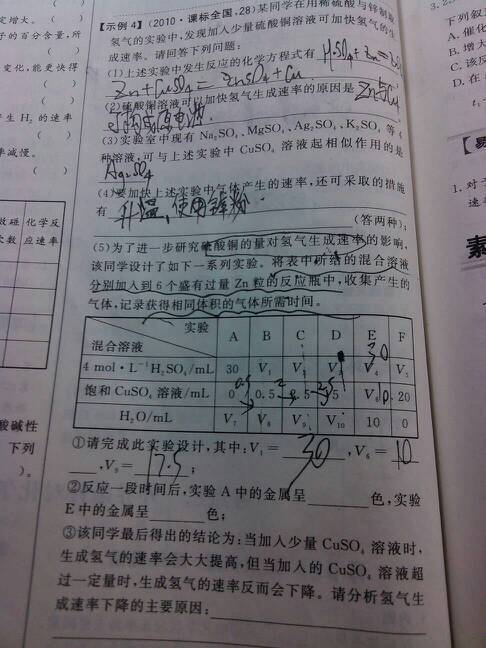 定增大。( )
子的百分含量,所
( )
变化,能更快得
( )
( )
产生 H₂ 的速率
( )
率减慢。
( )
数碰 化学反
次数 应速率
酸碱性
下列
)。
【示例 4】(2010·课标全国,28)某同学在用稀硫酸与锌制取
氢气的实验中,发现加入少量硫酸铜溶液可加快氢气的生
成速率。请回答下列问题:
(1)上述实验中发生反应的化学方程式有 H₂SO₄+Zn=
Zn+CuSO₄=ZnSO₄+Cu
(2)硫酸铜溶液可以加快氢气生成速率的原因是 Zn与Cu
可构成原电池
(3)实验室中现有 Na₂SO₄、MgSO₄、Ag₂SO₄、K₂SO₄ 等 4
种溶液,可与上述实验中 CuSO₄ 溶液起相似作用的是
Ag₂SO₄
(4)要加快上述实验中气体产生的速率,还可采取的措施
有 升温,使用锌粉
(答两种);
(5)为了进一步研究硫酸铜的量对氢气生成速率的影响,
该同学设计了如下一系列实验。将表中所给的混合溶液
分别加入到 6 个盛有过量 Zn 粒的反应瓶中,收集产生的
气体,记录获得相同体积的气体所需时间。
实验 A B C D E F
混合溶液
30
4 mol·L⁻¹H₂SO₄/mL 30 V₁ V₂ V₃ V₄ V₅
饱和 CuSO₄ 溶液/mL 0 0.5 2.5 5 V₆ 20
H₂O/mL V₇ V₈ V₉ V₁₀ 10 0
①请完成此实验设计,其中:V₁= 30 ,V₆= 10
,V₉= 17.5 ;
②反应一段时间后,实验 A 中的金属呈 色,实验
E 中的金属呈 色;
③该同学最后得出的结论为:当加入少量 CuSO₄ 溶液时,
生成氢气的速率会大大提高,但当加入的 CuSO₄ 溶液超
过一定量时,生成氢气的速率反而会下降。请分析氢气生
成速率下降的主要原因:
下列叙
A. 催化
B. 增大
C. 该反
D. 在
【易
1. 对于
速率
素